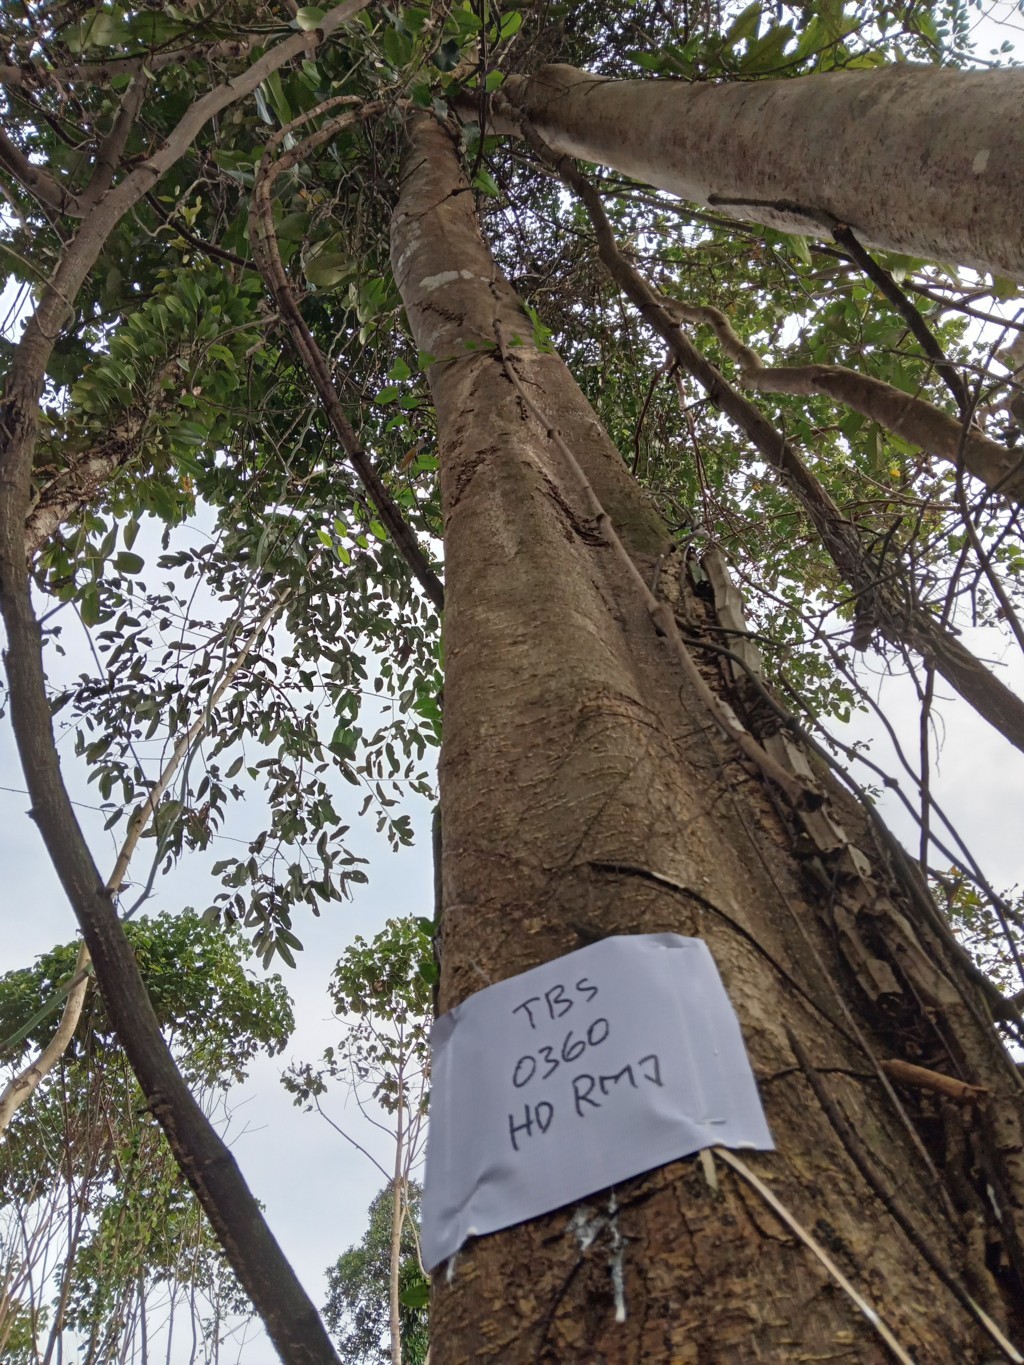 TBS
0360
HD RMJ